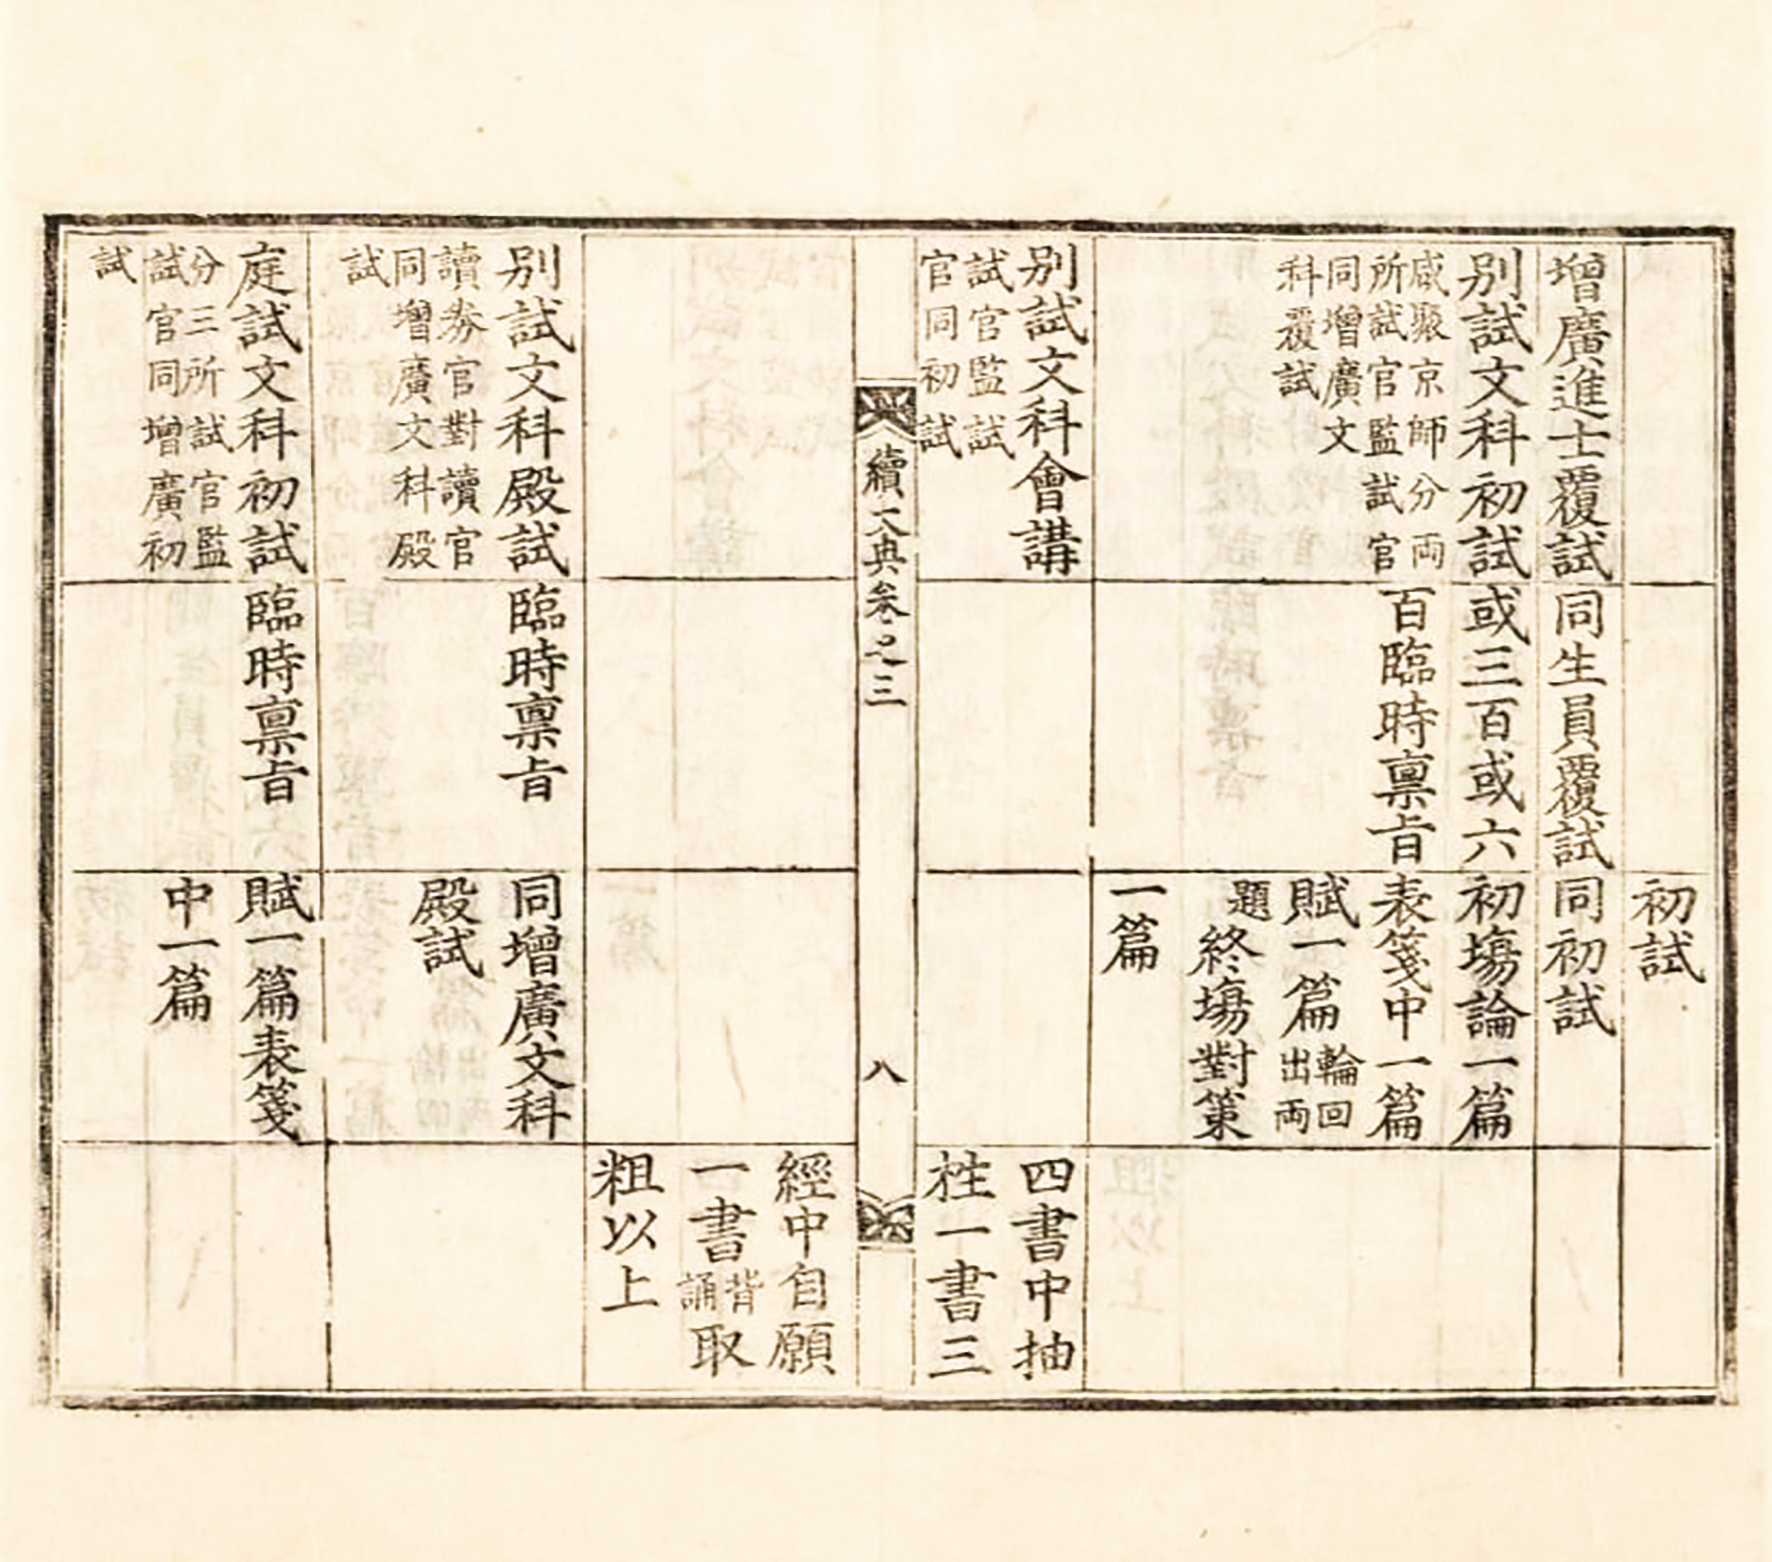 初試
增廣進士覆試
同生員覆試
同初試
別試文科初試
咸聚京師分両
所試官監試官
同增廣文
科覆試
或三百或六
百臨時稟旨
初塲論一篇
表箋中一篇
賦一篇
輪回
出両
題
終塲對策
一篇
別試文科會講
試官監試
官同初試
四書中抽
栍一書三
續大典卷之三
八
經中自願
一書
背
誦
取
粗以上
別試文科殿試
讀券官對讀官
同增廣文科殿
試
臨時稟旨
同增廣文科
殿試
庭試文科初試
分三所試官監
試官同增廣初
試
臨時稟旨
賦一篇表箋
中一篇